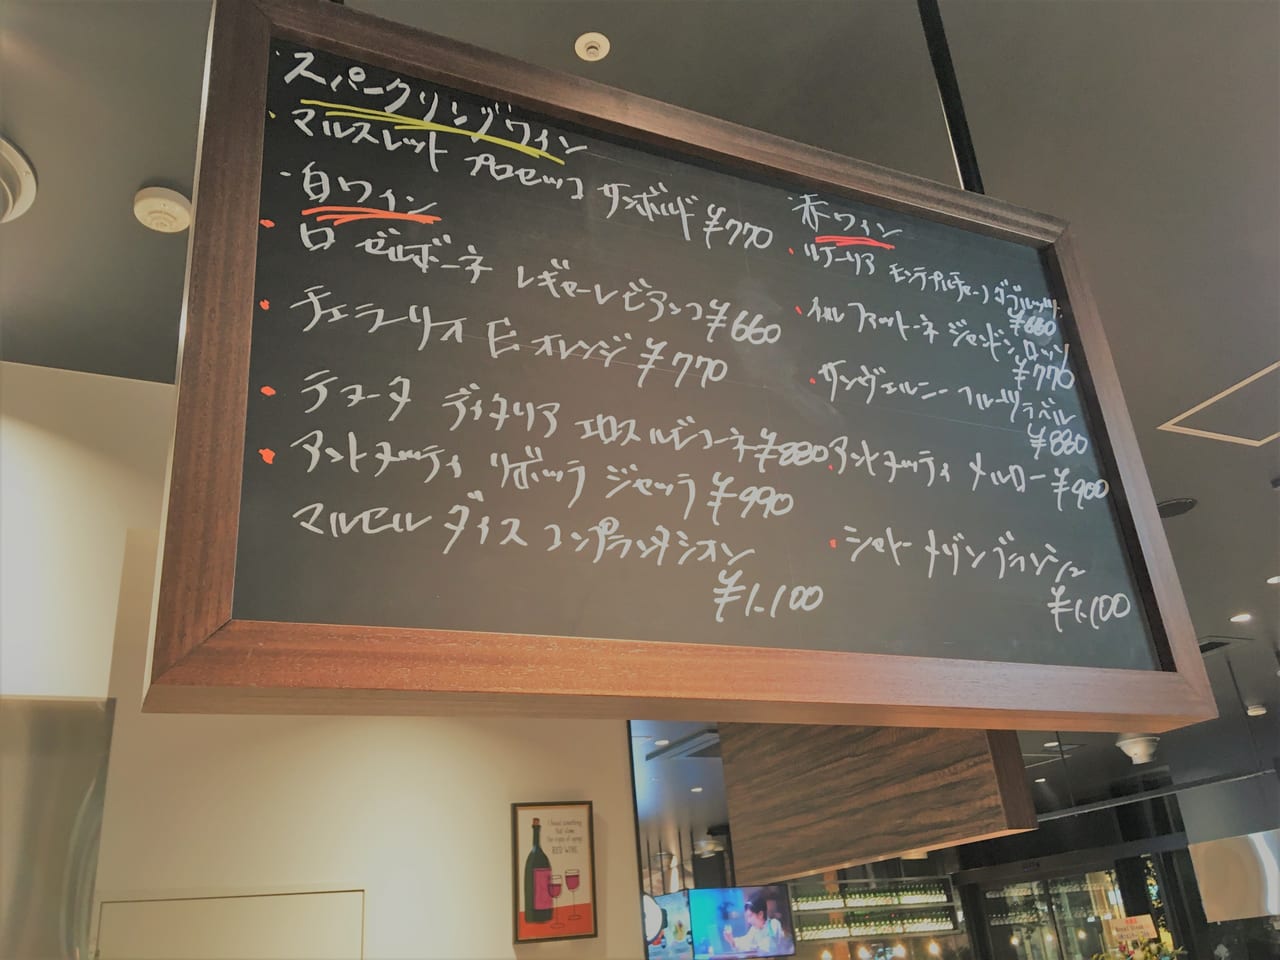 スパークリングワイン
マルスレット プロセッコ サンボルド ¥770
白ワイン
ロ ゼルボーネ レギャーレ ビアンコ ¥660
チェラーリオ E. オレンジ ¥770
テヌータ ディタリア エロス ルビコーネ ¥880
アントヌッティ リボッラ ジャッラ ¥990
マルセル ダイス コンプランタシオン
¥1.100
赤ワイン
ルテーリア モンテプルチャーノ ダブルッツォ
¥660
イル ファットーネ ジャンドン ロッソ
¥770
サンヴェルニー フルーツラベル
¥880
アントヌッティ メルロー ¥900
シャトー メゾン ブランシュ
¥1.100
I found something
RED WINE